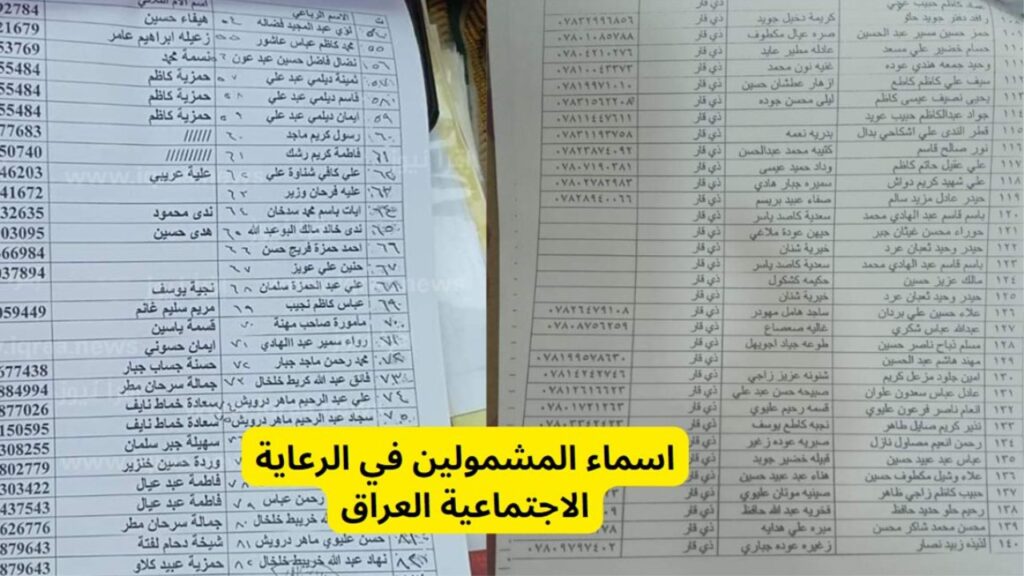 رافد دفتر جويد حلو كريمة دخيل جويد ذي قار ٠٧٨٣٢٩٩٦٨٥٦
حمز حسين مسير عبد الحسين صره عيال مكطوف ذي قار ٠٧٨٠١٠٨٥٧٨٨
١١٠ حسام خضير علي مسعد عادله مطير عايد ذي قار ٠٧٨٠٤٢١٠٢٧٦
١١١ وحيد جمعه هندي عوده غفيه نون محمد ذي قار ٠٧٨١٠٠٤٣٣٧٣
١١٢ سيف علي كاظم كاطع ازهار عطشان حسين ذي قار ٠٧٨١٩٩٧١٠١٠
١١٣ يحيى نصيف عيسى كاظم ليلى محسن جوده ذي قار
١١٤ جواد عبدالكاظم حبيب عويد ذي قار ٠٧٨١١٤٤٧٦١١
١١٥ قطر الندى علي اشكاحي بدال بدريه نعمه ذي قار ٠٧٨٣١١٩٣٧٥٨
١١٦ نور صالح قاسم محمد عبدالحسن ذي قار ٠٧٨٢٣٨٧٤٠٩٢
١١٧ علي عقيل حاتم كاظم وداد حميد عيسى ذي قار ٠٧٨٠٧١٩٠٣٨١
١١٨ علي شهيد كريم دواش سميره جبار هادي ذي قار ٠٧٨٠٢٧٨٢٩٨٣
١١٩ حيدر عادل مزيد سالم صفاء عبيد بريسم ذي قار ٠٧٨٢٨٩٤٠٠٦٦
١٢٠ باسم قاسم عبد الهادي محمد سعدية كاصد ياسر ذي قار
١٢١ حوراء محسن غيثان جبر جيهن عودة ملاغي ذي قار
١٢٢ حيدر وحيد ثعبان عرد خيرية شنان ذي قار
١٢٣ باسم قاسم عبد الهادي محمد سعدية كاصد ياسر ذي قار
١٢٤ مالك عزيز حسين حكيمه كشكول ذي قار
١٢٥ حيدر وحيد ثعبان عرد خيرية شنان ذي قار
١٢٦ علاء حسين علي بردان ساجد هامل مهودر ذي قار ٠٧٨٢٦٤٧٩١٠٨
١٢٧ عبدالله عباس شكري غاليه صعصاع ذي قار ٠٧٨٠٨٧٥٦٢٥٩
١٢٨ مسلم ذباح ناصر حسين طوعه جياد اجويهل ذي قار
١٢٩ مهند هاشم عبد الحسين ذي قار ٠٧٨١٩٩٥٧٨٦٣٠
١٣٠ امين جلود مزعل كريم شنونه عزيز زاجي ذي قار ٠٧٨١٤٢٤٢٧٤٦
١٣١ عادل عباس سعدون علوان صبيحه حسن عبد علي ذي قار ٠٧٨١٢٦١٦٦٢٣
١٣٢ انعام ناصر فرعون عليوي قسمه رحيم عليوي ذي قار ٠٧٨٠١٧٣١٢٦٣
١٣٣ نذير كريم صايل طاهر نجبه كاطع يوسف ذي قار
١٣٤ رحمن انعيم مصاول نازل صبريه عوده زغير ذي قار
١٣٥ عباس عبد عبيد حسين قبيله خضير جويد ذي قار
١٣٦ علاء وشيل مكطوف حسين هناء عبد عبيد حسين ذي قار
١٣٧ حبيب كاظم زاجي طاهر صبنيه مونان عليوي ذي قار
١٣٨ رحيم حلو حديد حافظ فخريه عبد الله حافظ ذي قار
١٣٩ محسن محمد شاكر محسن ميره علي هدايه ذي قار
١٤٠ لذيذه زبيد نصار زغيره عوده جباري ذي قار ٠٧٨٠٩٧٩٧٤٠٢
ت الاسم الرباعي اسم الام الثلاثي
لؤي عبد المجيد فضاله هيفاء حسين
محمد كاظم عباس عاشور زعيله ابراهيم عامر
نضال فاضل حسين عبد عون نسمة محمد
ثمينة ديلمي عبد علي حمزية كاظم
قاسم ديلمي عبد علي حمزية كاظم
ايمان ديلمي عبد علي حمزية كاظم
رسول كريم ماجد ٦٠ //////
فاطمة كريم رشك ٦١ //////////
علي كافي شناوة علي علية عريبي
عليه فرحان وزير
ايات باسم محمد سدخان ٦٤ ندى محمود
ندى خالد مالك البوعبد الله هدى حسين
احمد حمزة فريج حسن ٦٦
حنين علي عويز ٦٧
علي عبد الحمزة سلمان ٦٨ نجية يوسف
عباس كاظم نجيب ٦٩ مريم سليم غانم
مامورة صاحب مهنة ٧٠ قسمة ياسين
رواء سمير عبد الهادي ٧١ ايمان حسوني
محمد رحمن ماجد جبار حسنة جساب جبار
فائق عبد الله كريط خلخال جمالة سرحان مطر
علي عبد الرحيم ماهر درويش سعادة خماط نايف
سجاد عبد الرحيم ماهر درويش سعادة خماط نايف
سهيلة جبر سلمان
وردة حسين خنزير
فاطمة عبد عيال
رحمن عباس فاطمة عبد عيال
خريبط خلخال جمالة سرحان مطر
حسن عليوي ماهر درويش ٨١ شيخة دحام لفتة
نهاد عبد الله خريبط خلخال حمزية عبيد كلاو
www.iqraa.news
اسماء المشمولين في الرعاية
الاجتماعية العراق